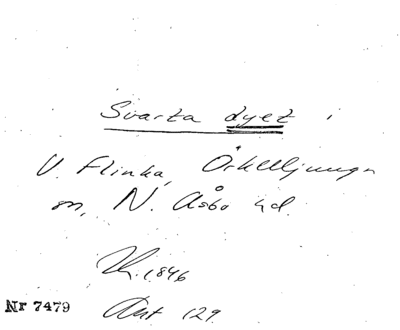 Svarta dyet i
V. Flinka, Örkelljunga
sn, N. Åsbo hd.
1846
Nr 7479 Ant 129